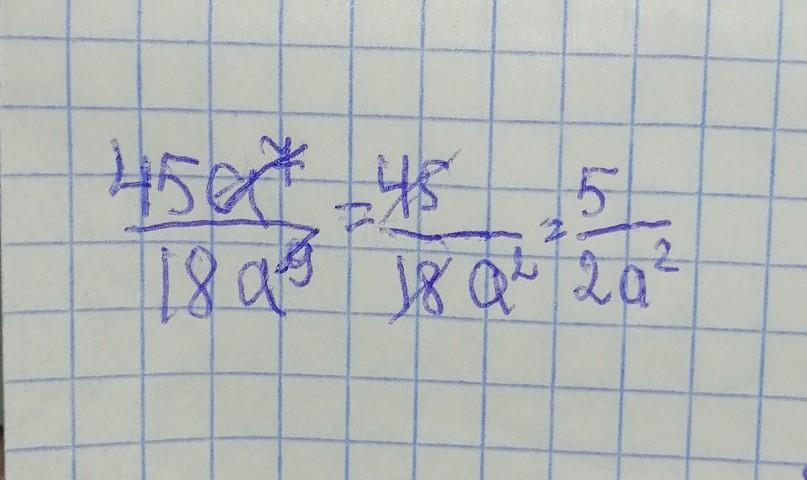 45a⁷/18a⁹ = 45/18a² = 5/2a²